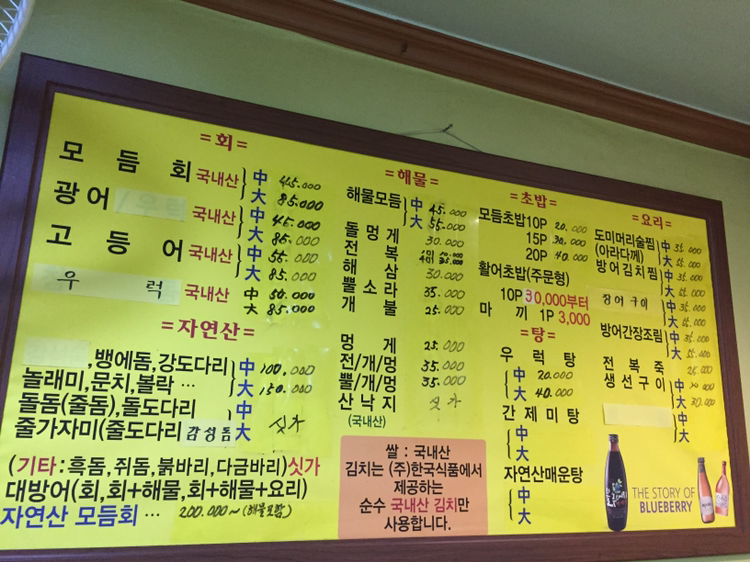 =회=
모듬회 국내산 中 45.000
大 85.000
광어 국내산 中 45.000
大 85.000
고등어 국내산 中 55.000
大 85.000
우럭 국내산 中 50.000
大 85.000
=자연산=
,뱅에돔,강도다리 中 100.000
놀래미,문치,볼락 … 大 150.000
돌돔(줄돔),돌도다리 中 싯가
줄가자미(줄도다리 감성돔 大
(기타:흑돔,쥐돔,붉바리,다금바리)싯가
대방어(회,회+해물,회+해물+요리)
자연산 모듬회 … 200.000~(해물포함)
=해물=
해물모듬 中 45.000
大 55.000
돌멍게 30.000
전복
해삼 30.000
뿔소라 35.000
개불 25.000
멍게 25.000
전/개/멍 35.000
뿔/개/멍 35.000
산낙지 싯가
(국내산)
쌀 : 국내산
김치는 (주)한국식품에서
제공하는
순수 국내산 김치만
사용합니다.
=초밥=
모듬초밥10P 20.000
15P 30.000
20P 40.000
활어초밥(주문형)
10P 30,000부터
마끼 1P 3,000
=탕=
우럭탕
中 20.000
大 40.000
간제미탕
中
大
자연산매운탕
中
大
=요리=
도미머리술찜 中 35.000
(아라다께) 大
방어김치찜 中 35.000
大
장어구이 中 35.000
大
방어간장조림 中 35.000
大
전복죽
생선구이 中
大 30.000
中
大
THE STORY OF
BLUEBERRY